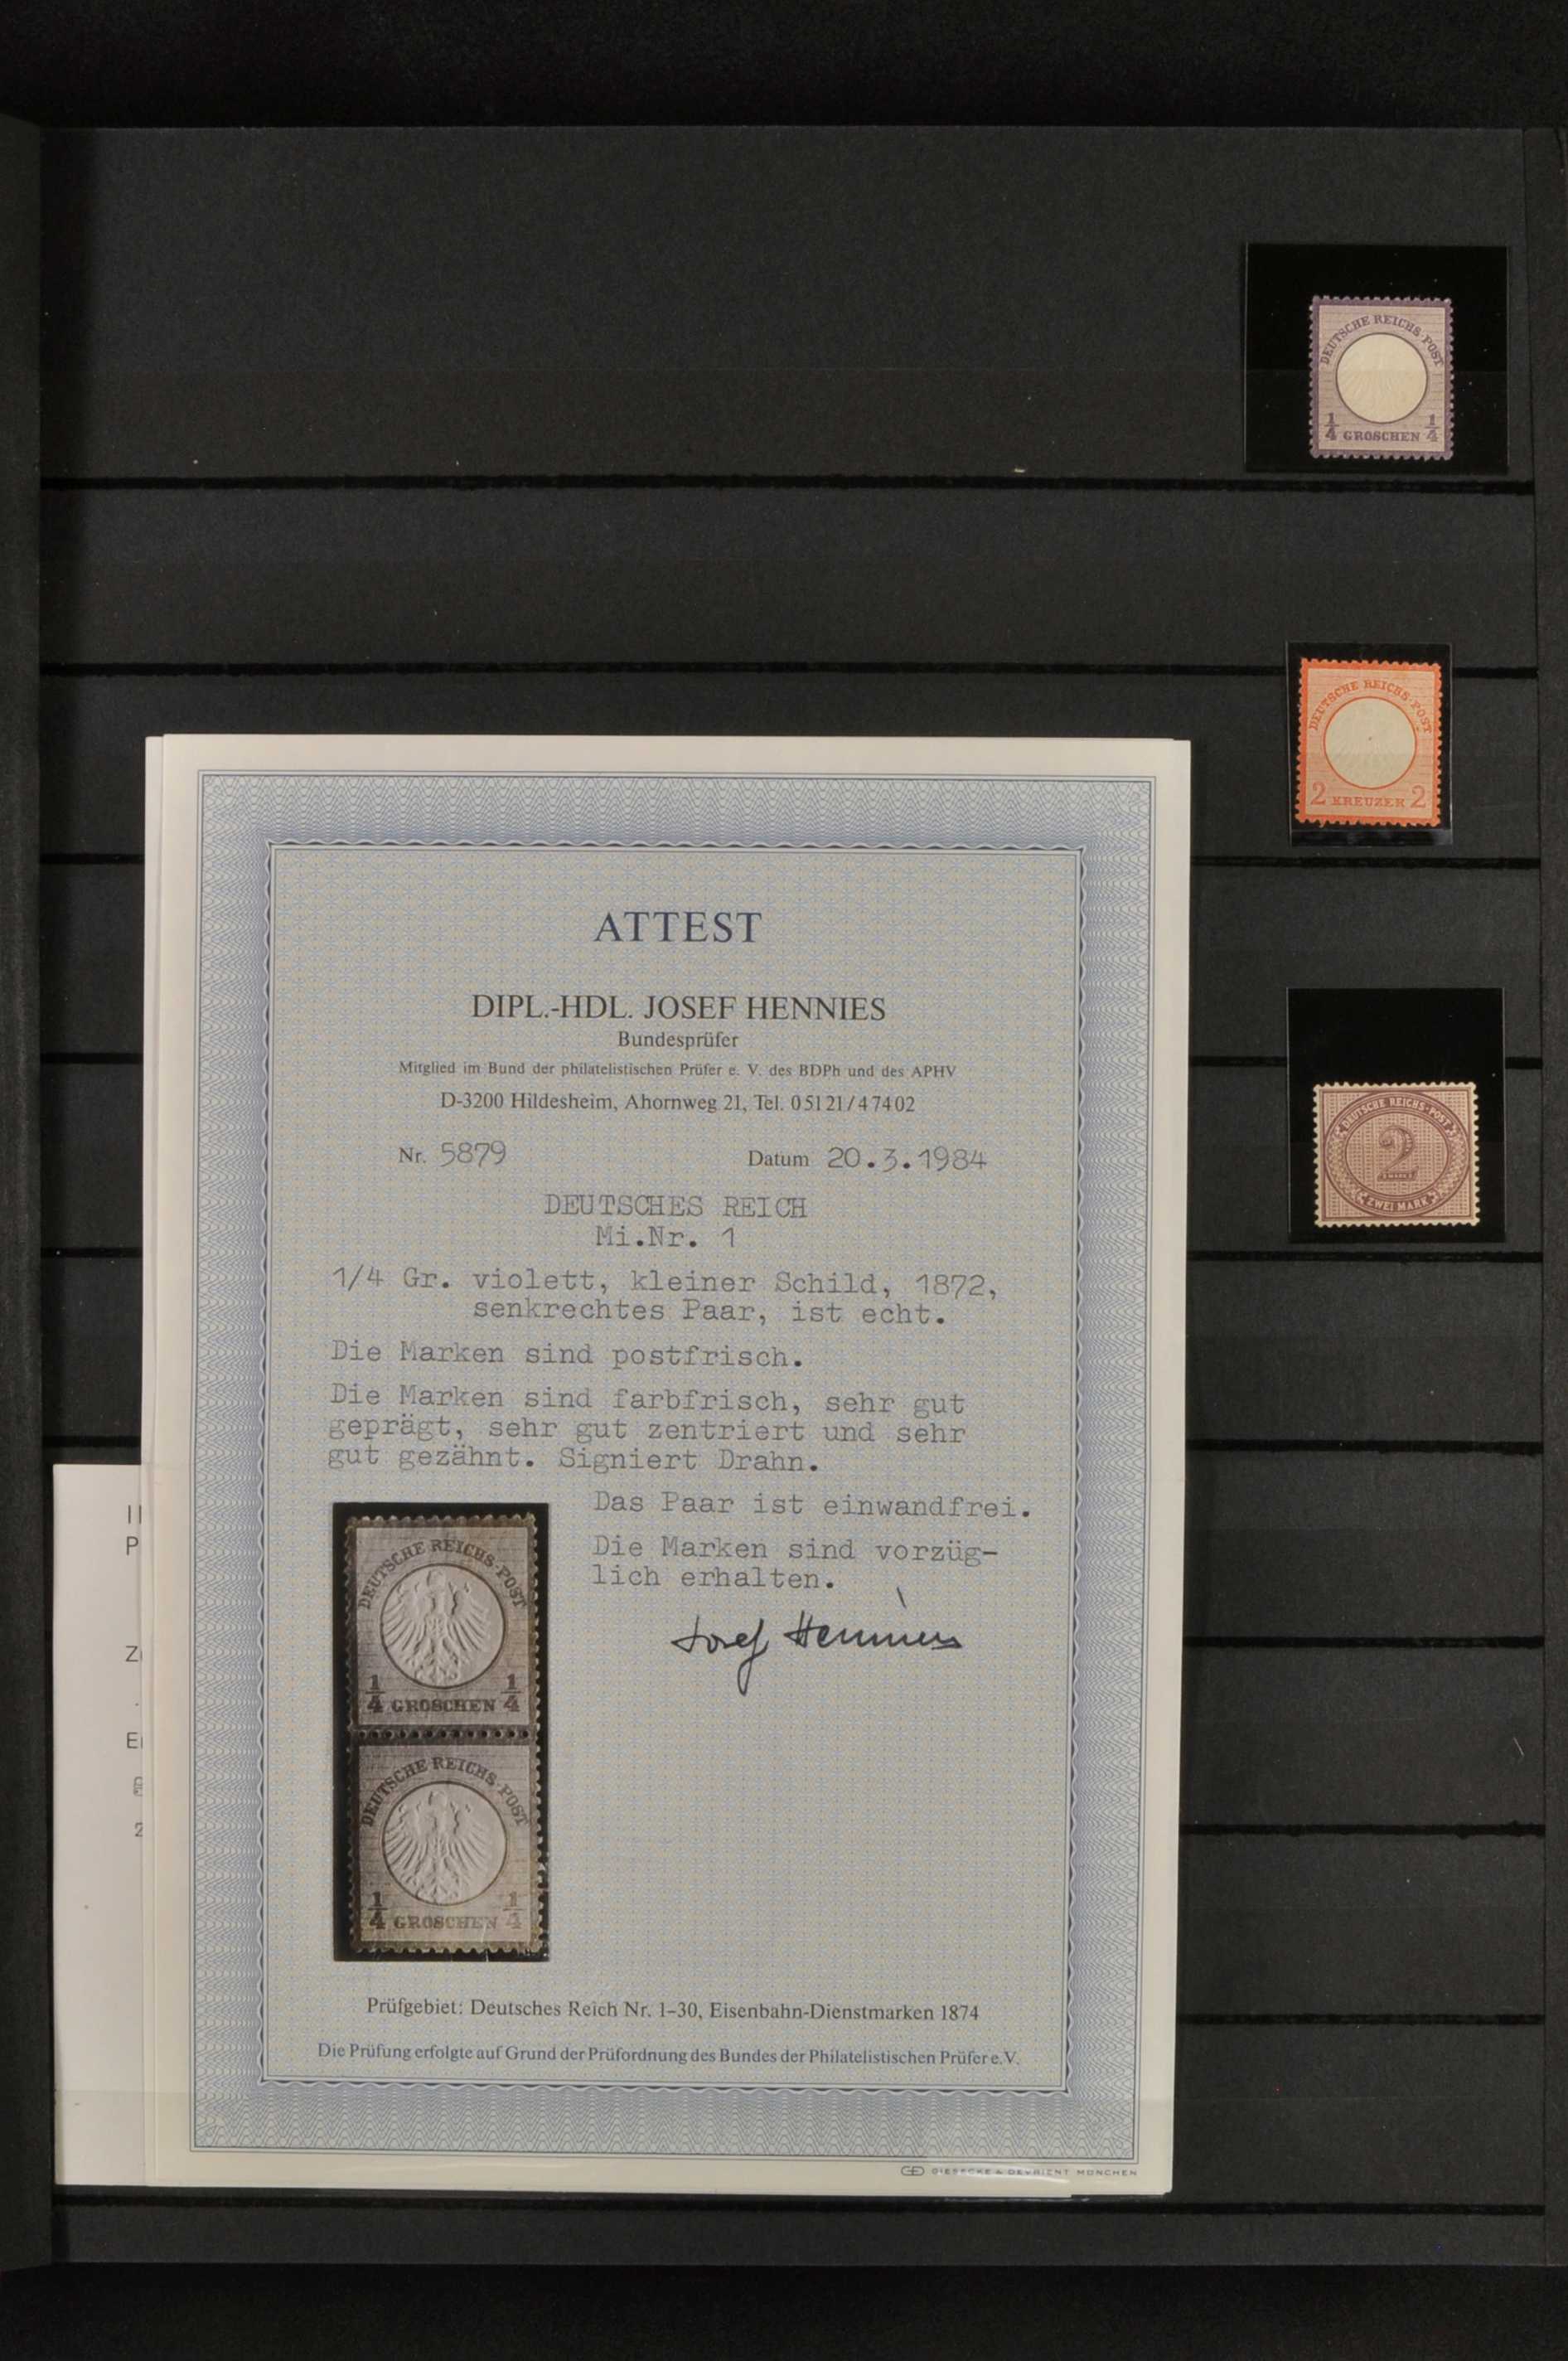 DEUTSCHE REICHS-POST
1/4 GROSCHEN 1/4
DEUTSCHE REICHS-POST
2 KREUZER 2
DEUTSCHE REICHS-POST
2
ZWEI MARK
ATTEST
DIPL.-HDL. JOSEF HENNIES
Bundesprüfer
Mitglied im Bund der philatelistischen Prüfer e. V. des BDPh und des APHV
D-3200 Hildesheim, Ahornweg 21, Tel. 05121/47402
Nr. 5879 Datum 20.3.1984
DEUTSCHES REICH
Mi.Nr. 1
1/4 Gr. violett, kleiner Schild, 1872,
senkrechtes Paar, ist echt.
Die Marken sind postfrisch.
Die Marken sind farbfrisch, sehr gut
geprägt, sehr gut zentriert und sehr
gut gezähnt. Signiert Drahn.
Das Paar ist einwandfrei.
Die Marken sind vorzüg-
lich erhalten.
Josef Hennies
DEUTSCHE REICHS-POST
1/4 GROSCHEN 1/4
DEUTSCHE REICHS-POST
1/4 GROSCHEN 1/4
Prüfgebiet: Deutsches Reich Nr. 1-30, Eisenbahn-Dienstmarken 1874
Die Prüfung erfolgte auf Grund der Prüfordnung des Bundes der Philatelistischen Prüfer e.V.
GIESECKE & DEVRIENT MÜNCHEN
P